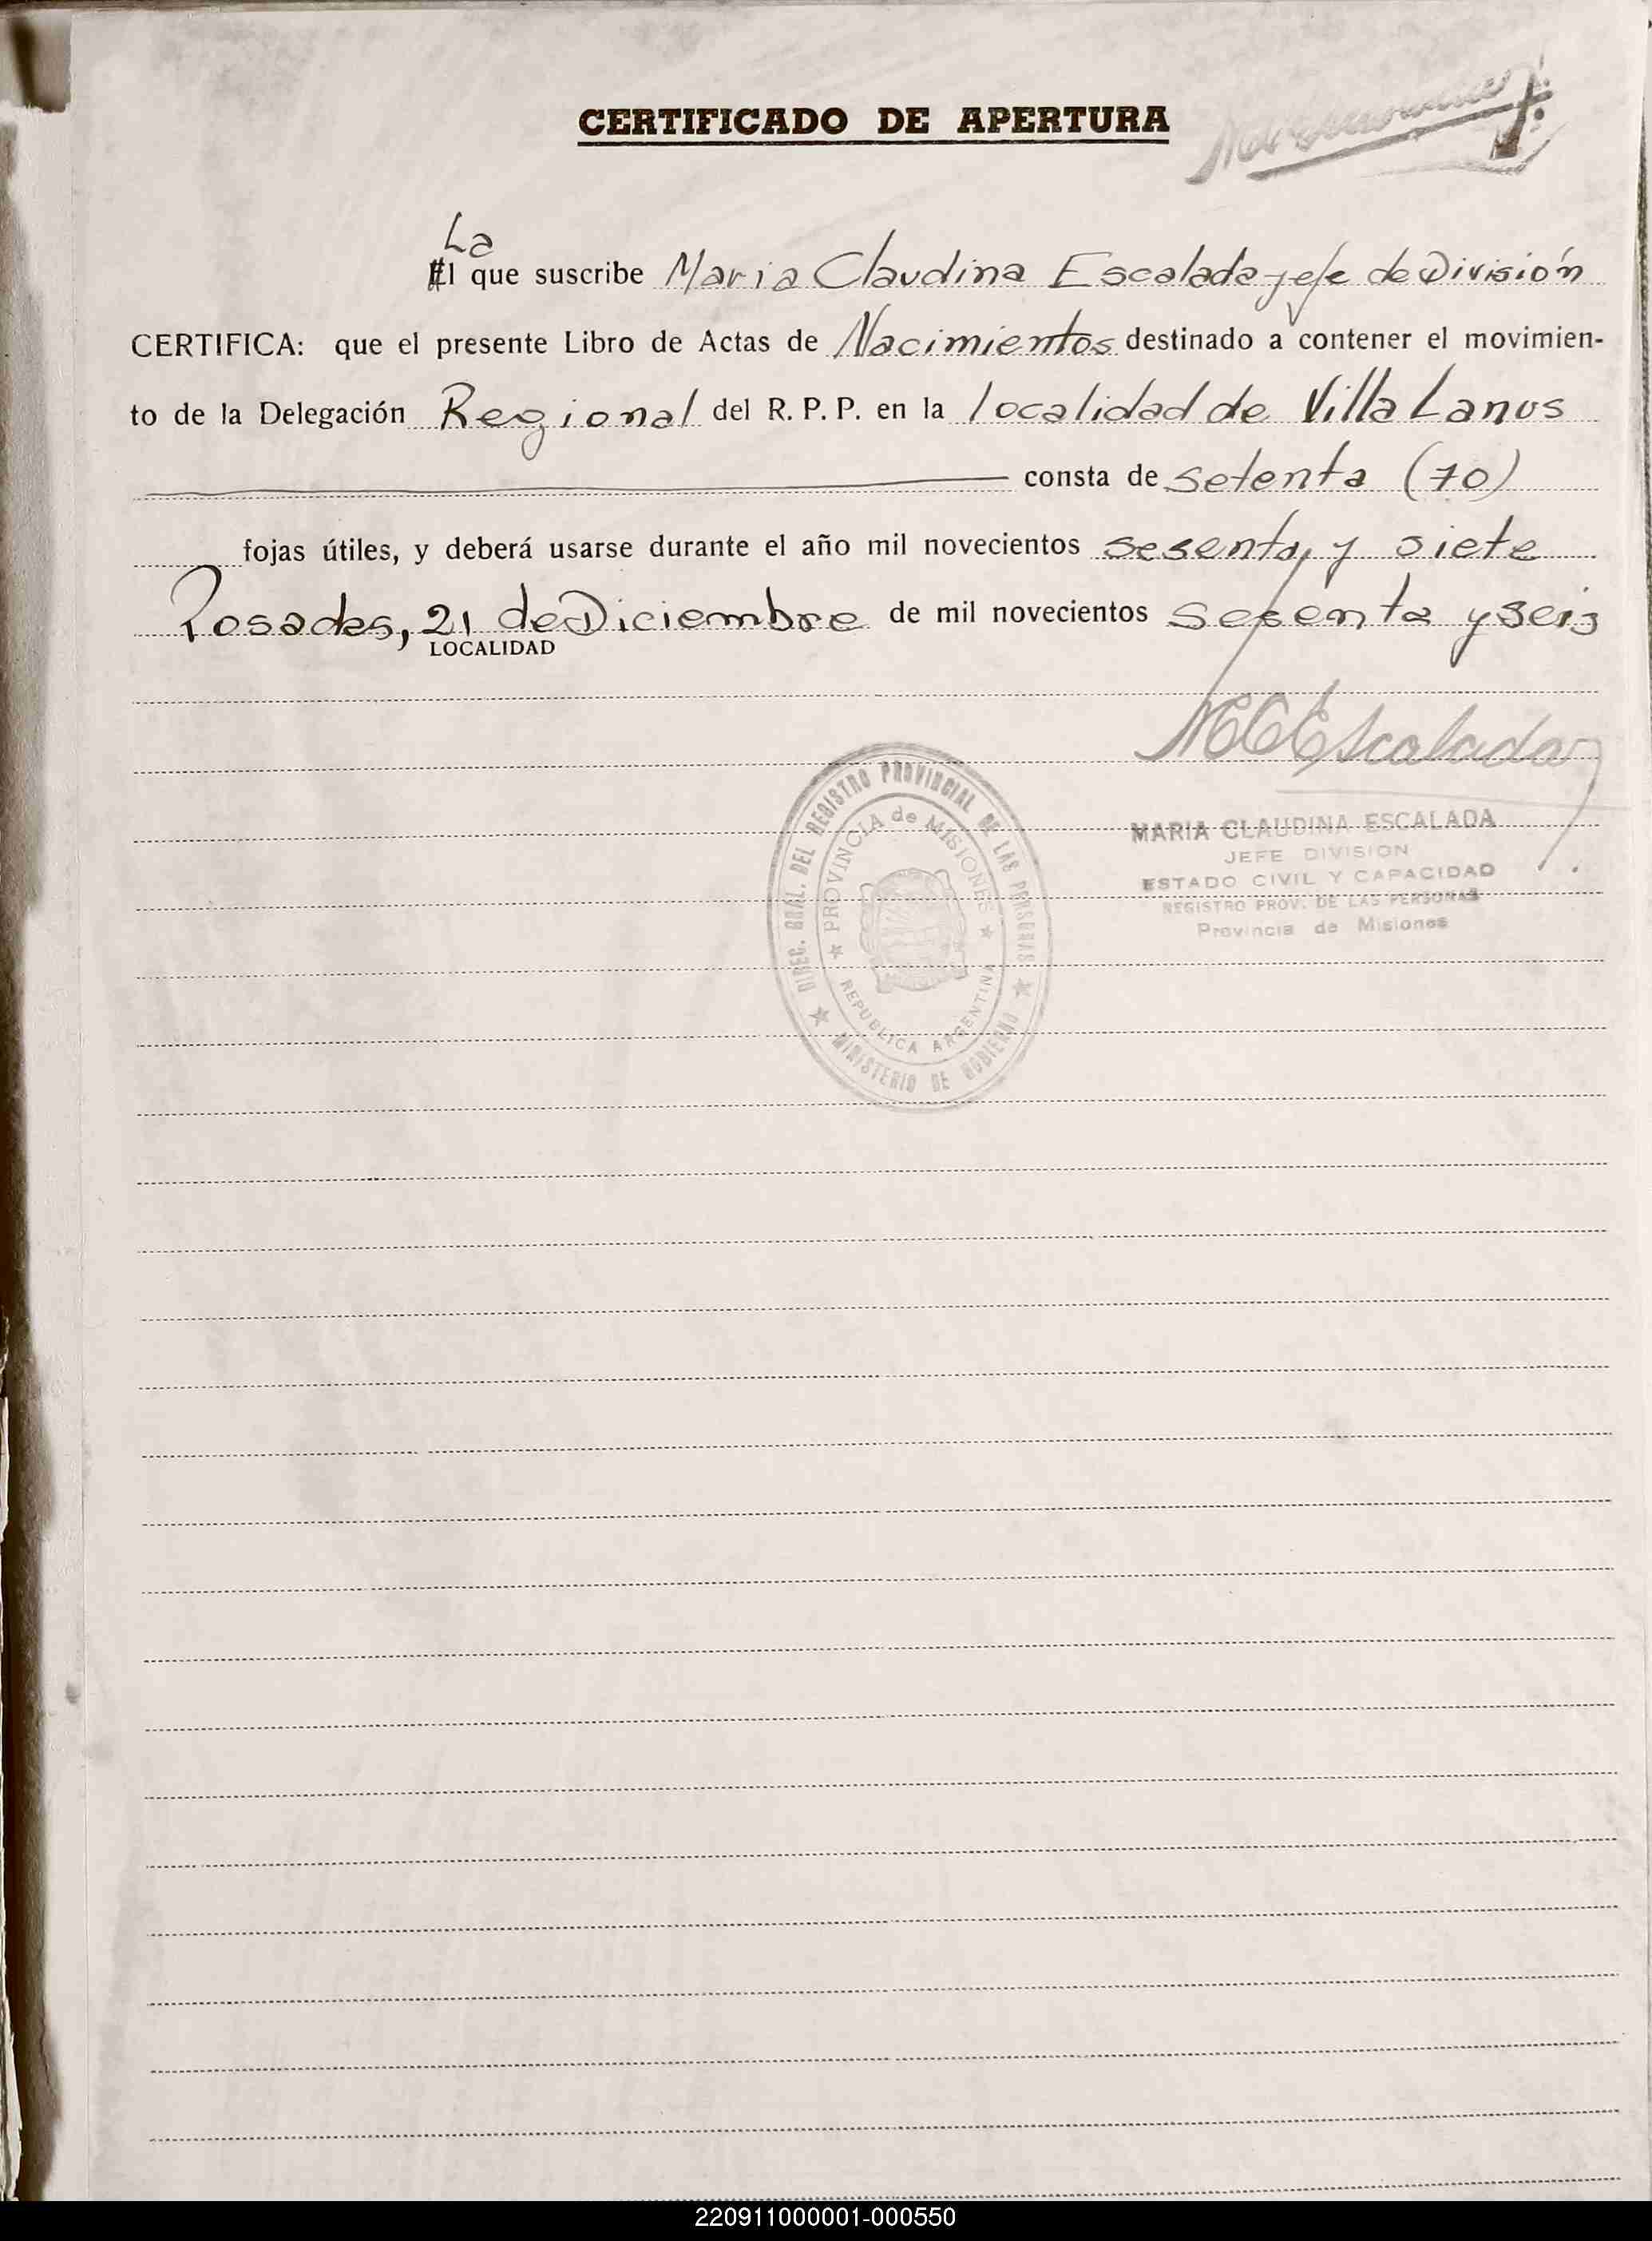 CERTIFICADO DE APERTURA
La
El que suscribe Maria Claudina Escalada jefe de División
CERTIFICA: que el presente Libro de Actas de Nacimientos destinado a contener el movimien-
to de la Delegación Regional del R. P. P. en la localidad de Villa Lanus
consta de setenta (70)
fojas útiles, y deberá usarse durante el año mil novecientos sesenta y siete
Posadas, 21 de Diciembre de mil novecientos sesenta y seis
LOCALIDAD
MCEscalada
MARIA CLAUDINA ESCALADA
JEFE DIVISION
ESTADO CIVIL Y CAPACIDAD
REGISTRO PROV. DE LAS PERSONAS
Provincia de Misiones
DIREC. GRAL. DEL REGISTRO PROVINCIAL DE LAS PERSONAS
PROVINCIA de MISIONES
REPUBLICA ARGENTINA
MINISTERIO DE GOBIERNO
220911000001-000550